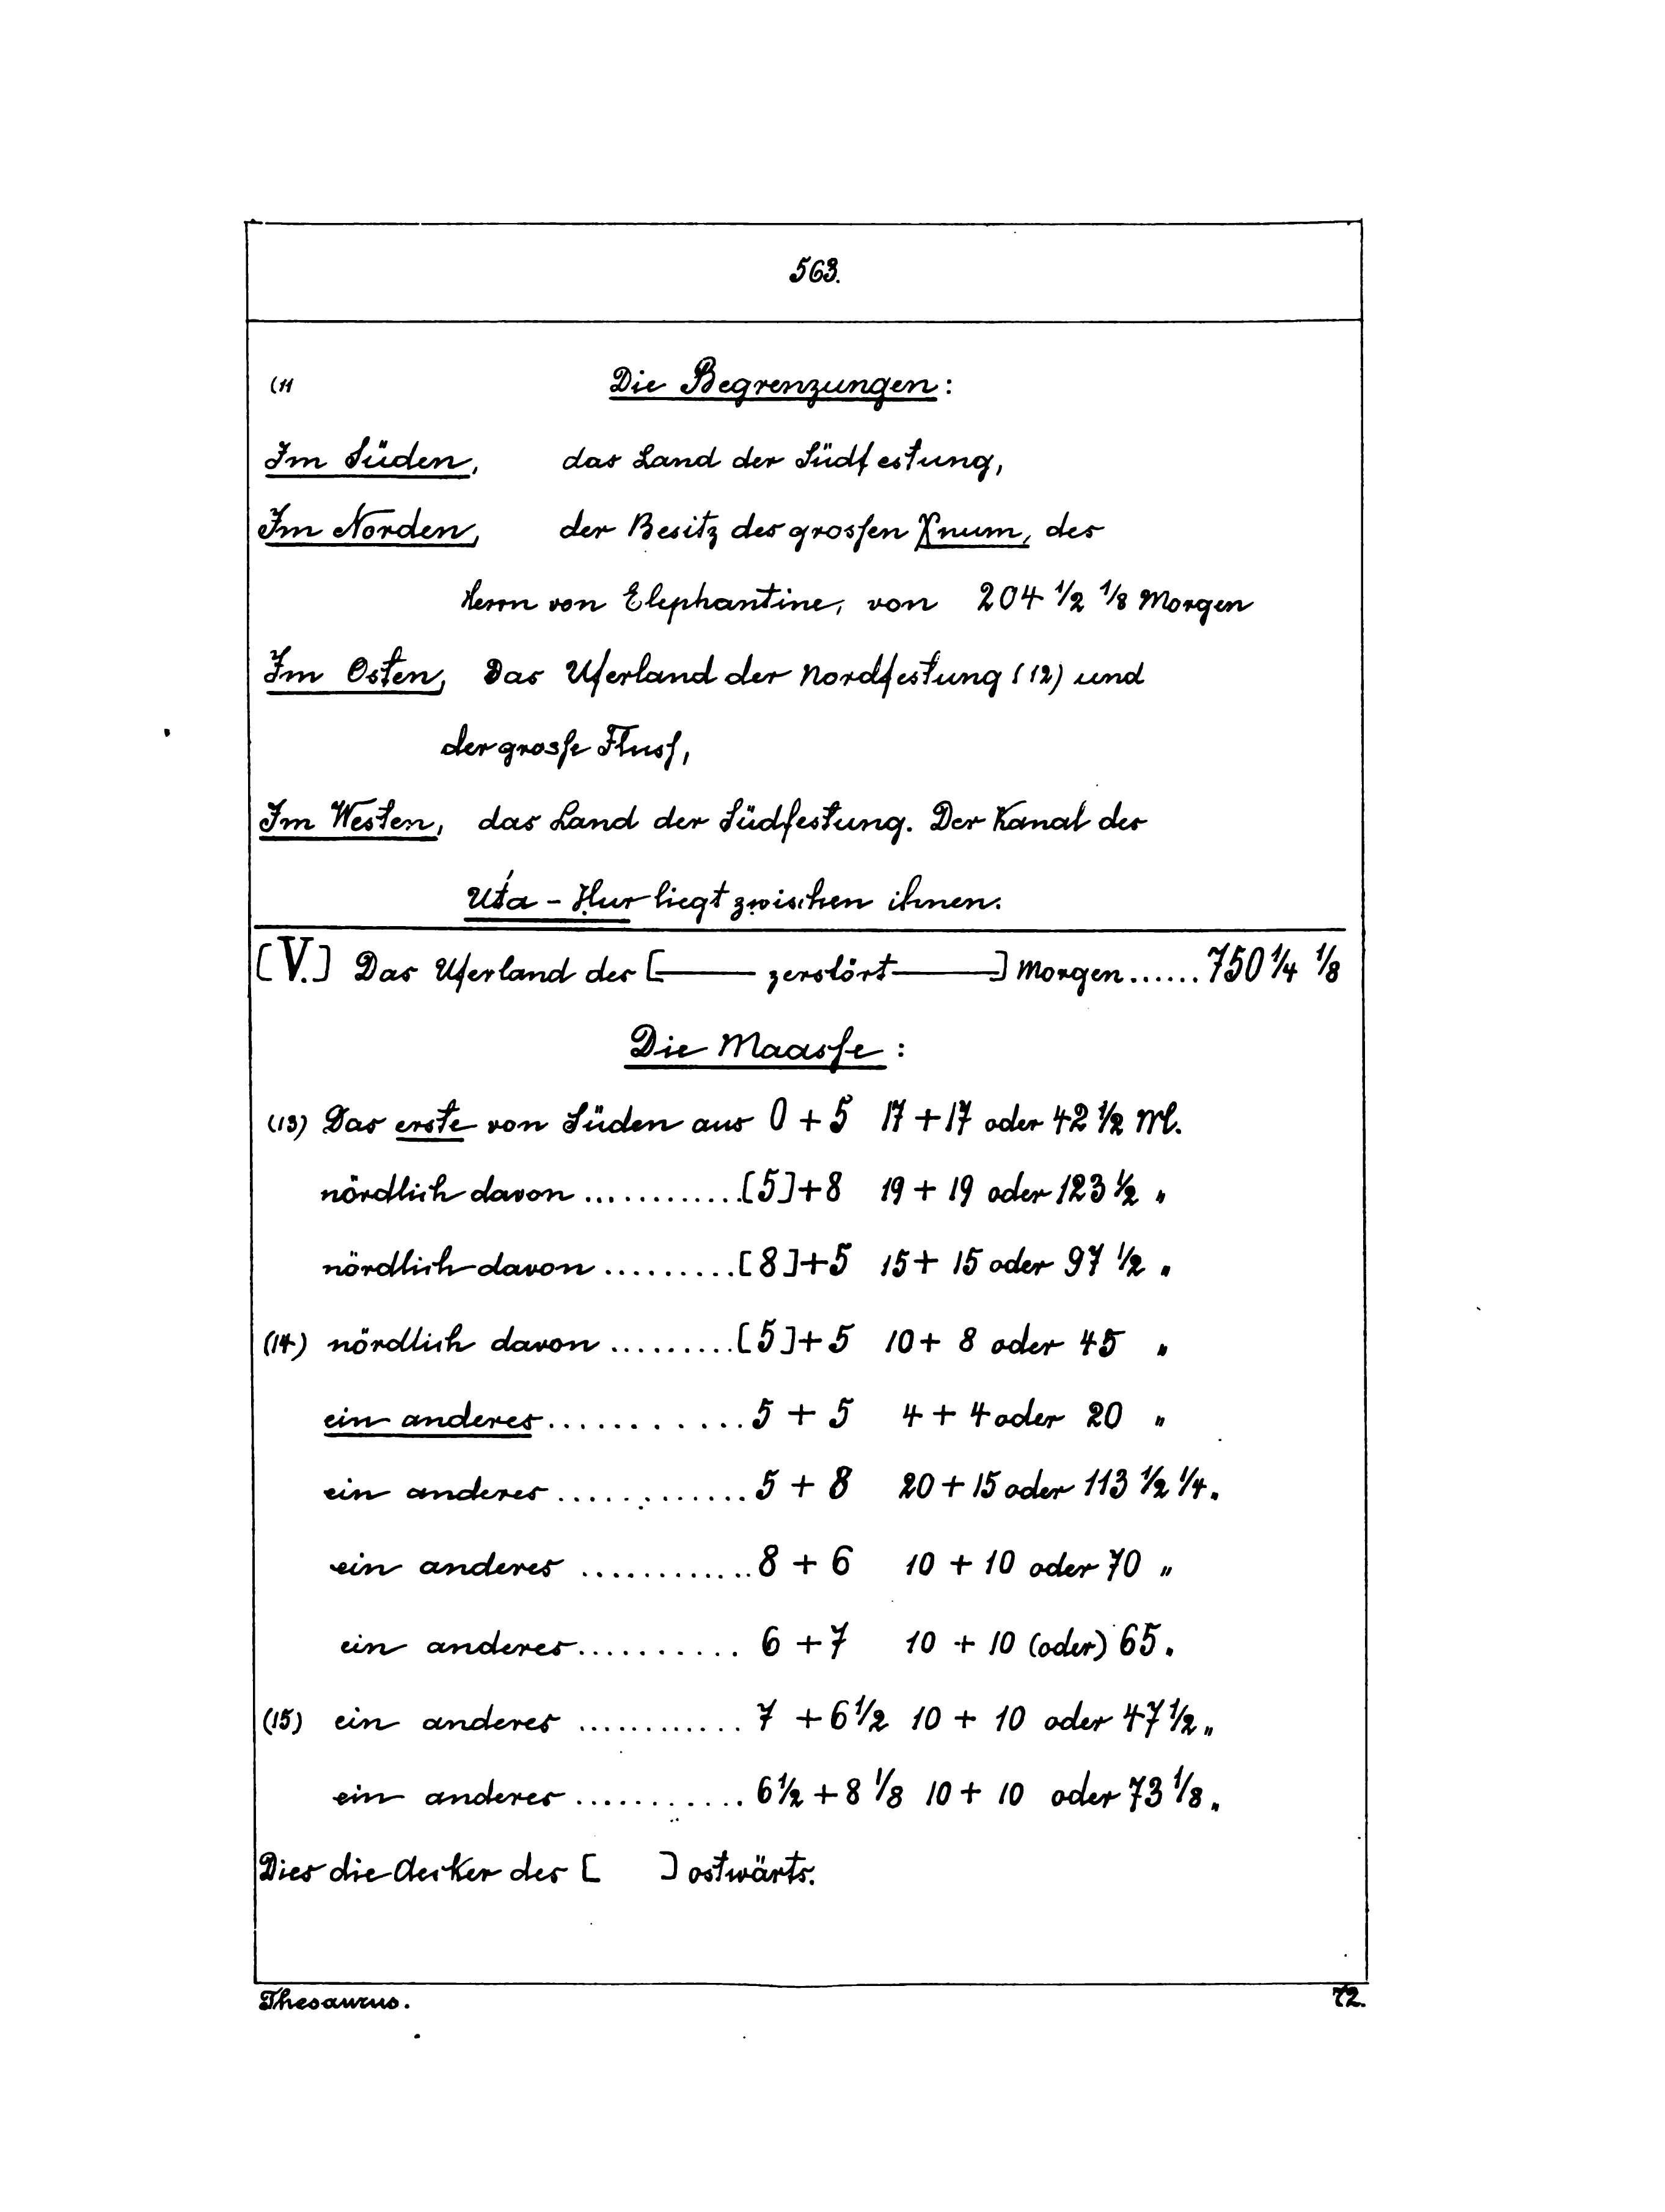 563.
(11 Die Begrenzungen:
Im Süden, das Land der Südfestung,
Im Norden, der Besitz des grossen Xnum, des
Herrn von Elephantine, von 204 1/2 1/8 Morgen
Im Osten, Das Uferland der Nordfestung (12) und
der grosse Fluss,
Im Westen, das Land der Südfestung. Der Kanal des
Uťa - Ḥur liegt zwischen ihnen.
[V.] Das Uferland des [—— zerstört ——] Morgen ...... 750 1/4 1/8
Die Maasse:
(13) Das erste von Süden aus 0 + 5 17 + 17 oder 42 1/2 M.
nördlich davon ............ [5] + 8 19 + 19 oder 123 1/2 "
nördlich davon ......... [8] + 5 15 + 15 oder 97 1/2 "
(14) nördlich davon ......... [5] + 5 10 + 8 oder 45 "
ein anderes ............ 5 + 5 4 + 4 oder 20 "
ein anderes ............ 5 + 8 20 + 15 oder 113 1/2 1/4 "
ein anderes ............ 8 + 6 10 + 10 oder 70 "
ein anderes .......... 6 + 7 10 + 10 (oder) 65 "
(15) ein anderes ............ 7 + 6 1/2 10 + 10 oder 47 1/2 "
ein anderes ........... 6 1/2 + 8 1/8 10 + 10 oder 73 1/8 "
Dies die Aecker des [ ] ostwärts.
Thesaurus. 72.